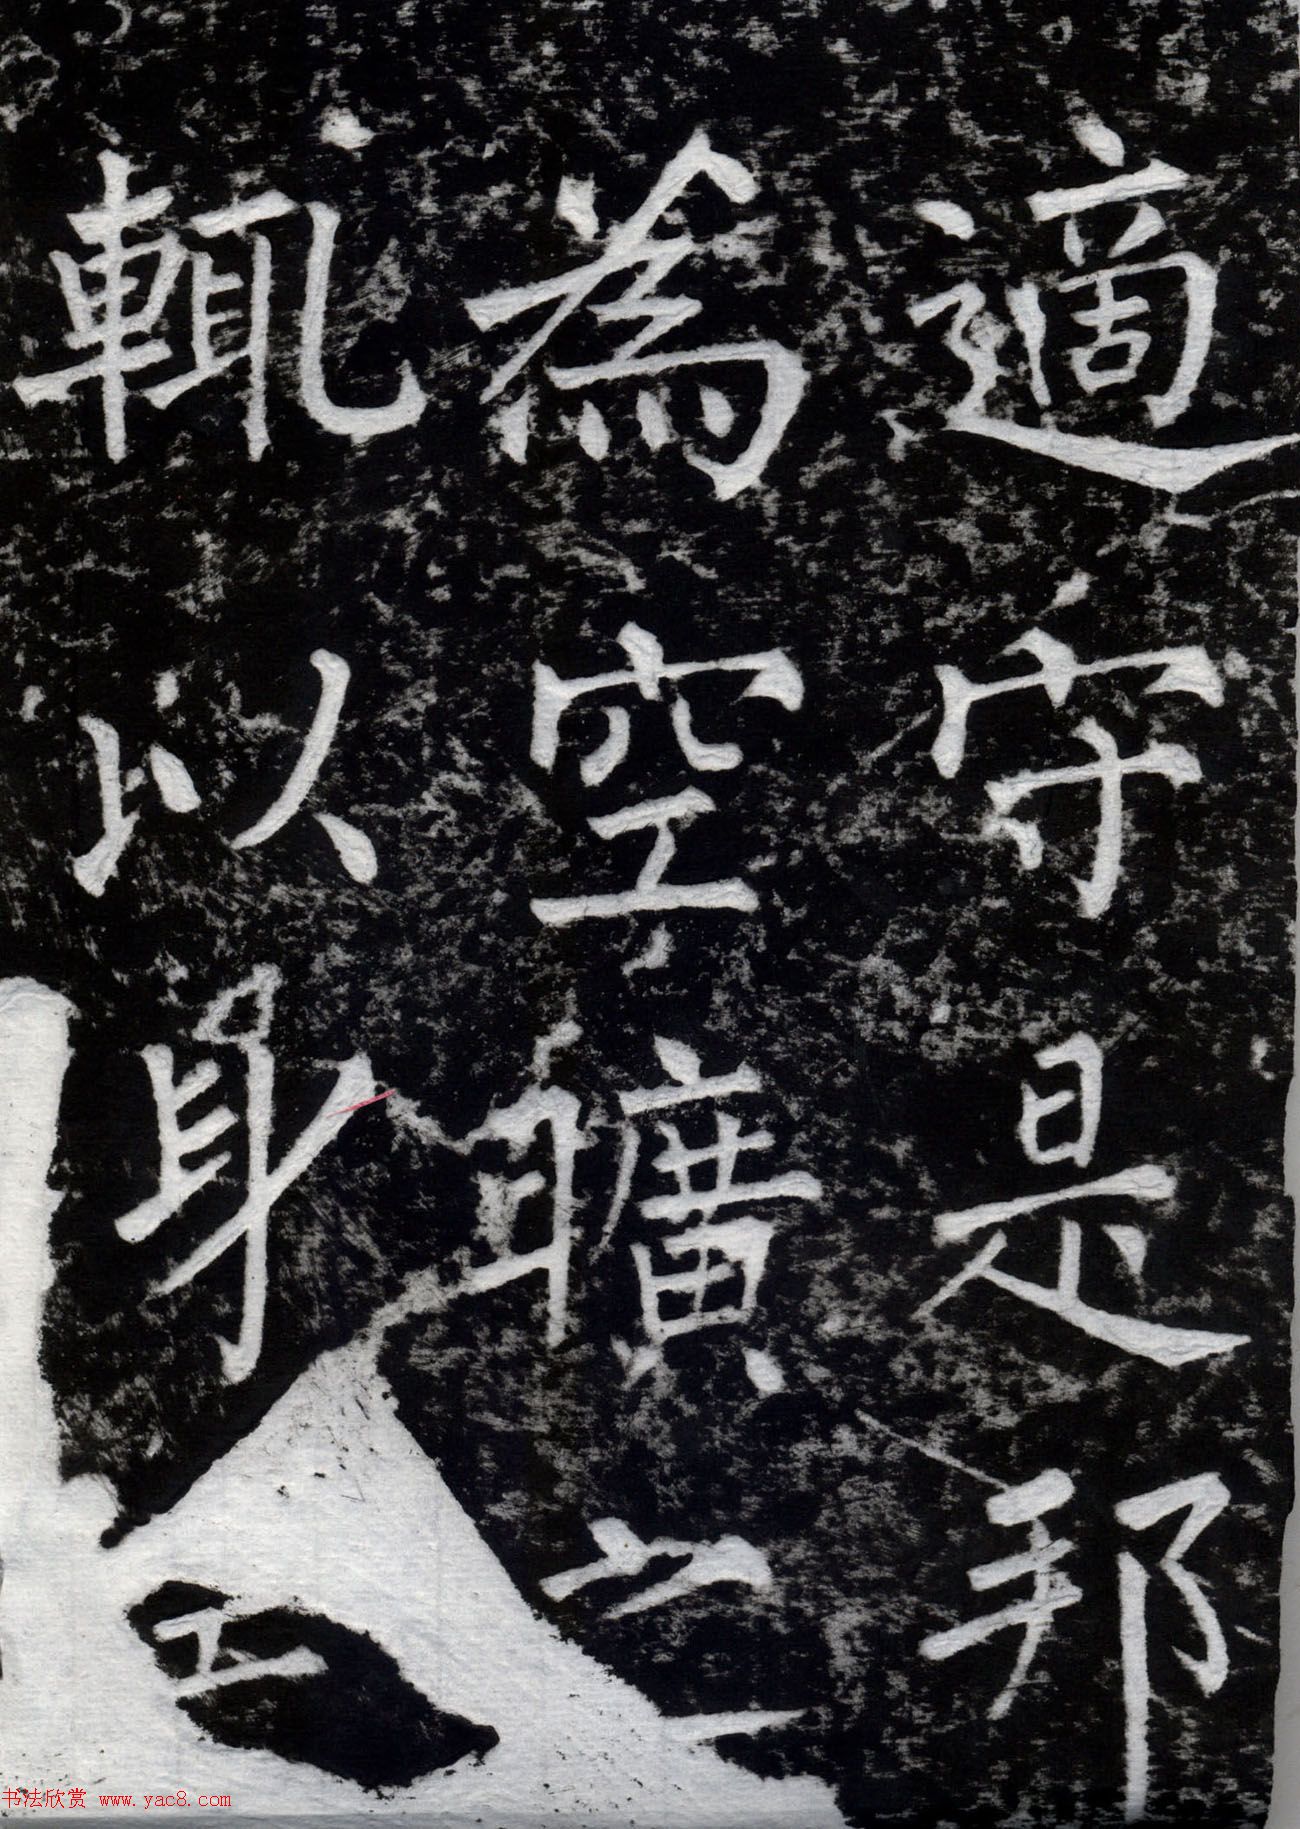 適守是邦
為空曠
輒以身
书法欣赏 www.yac8.com